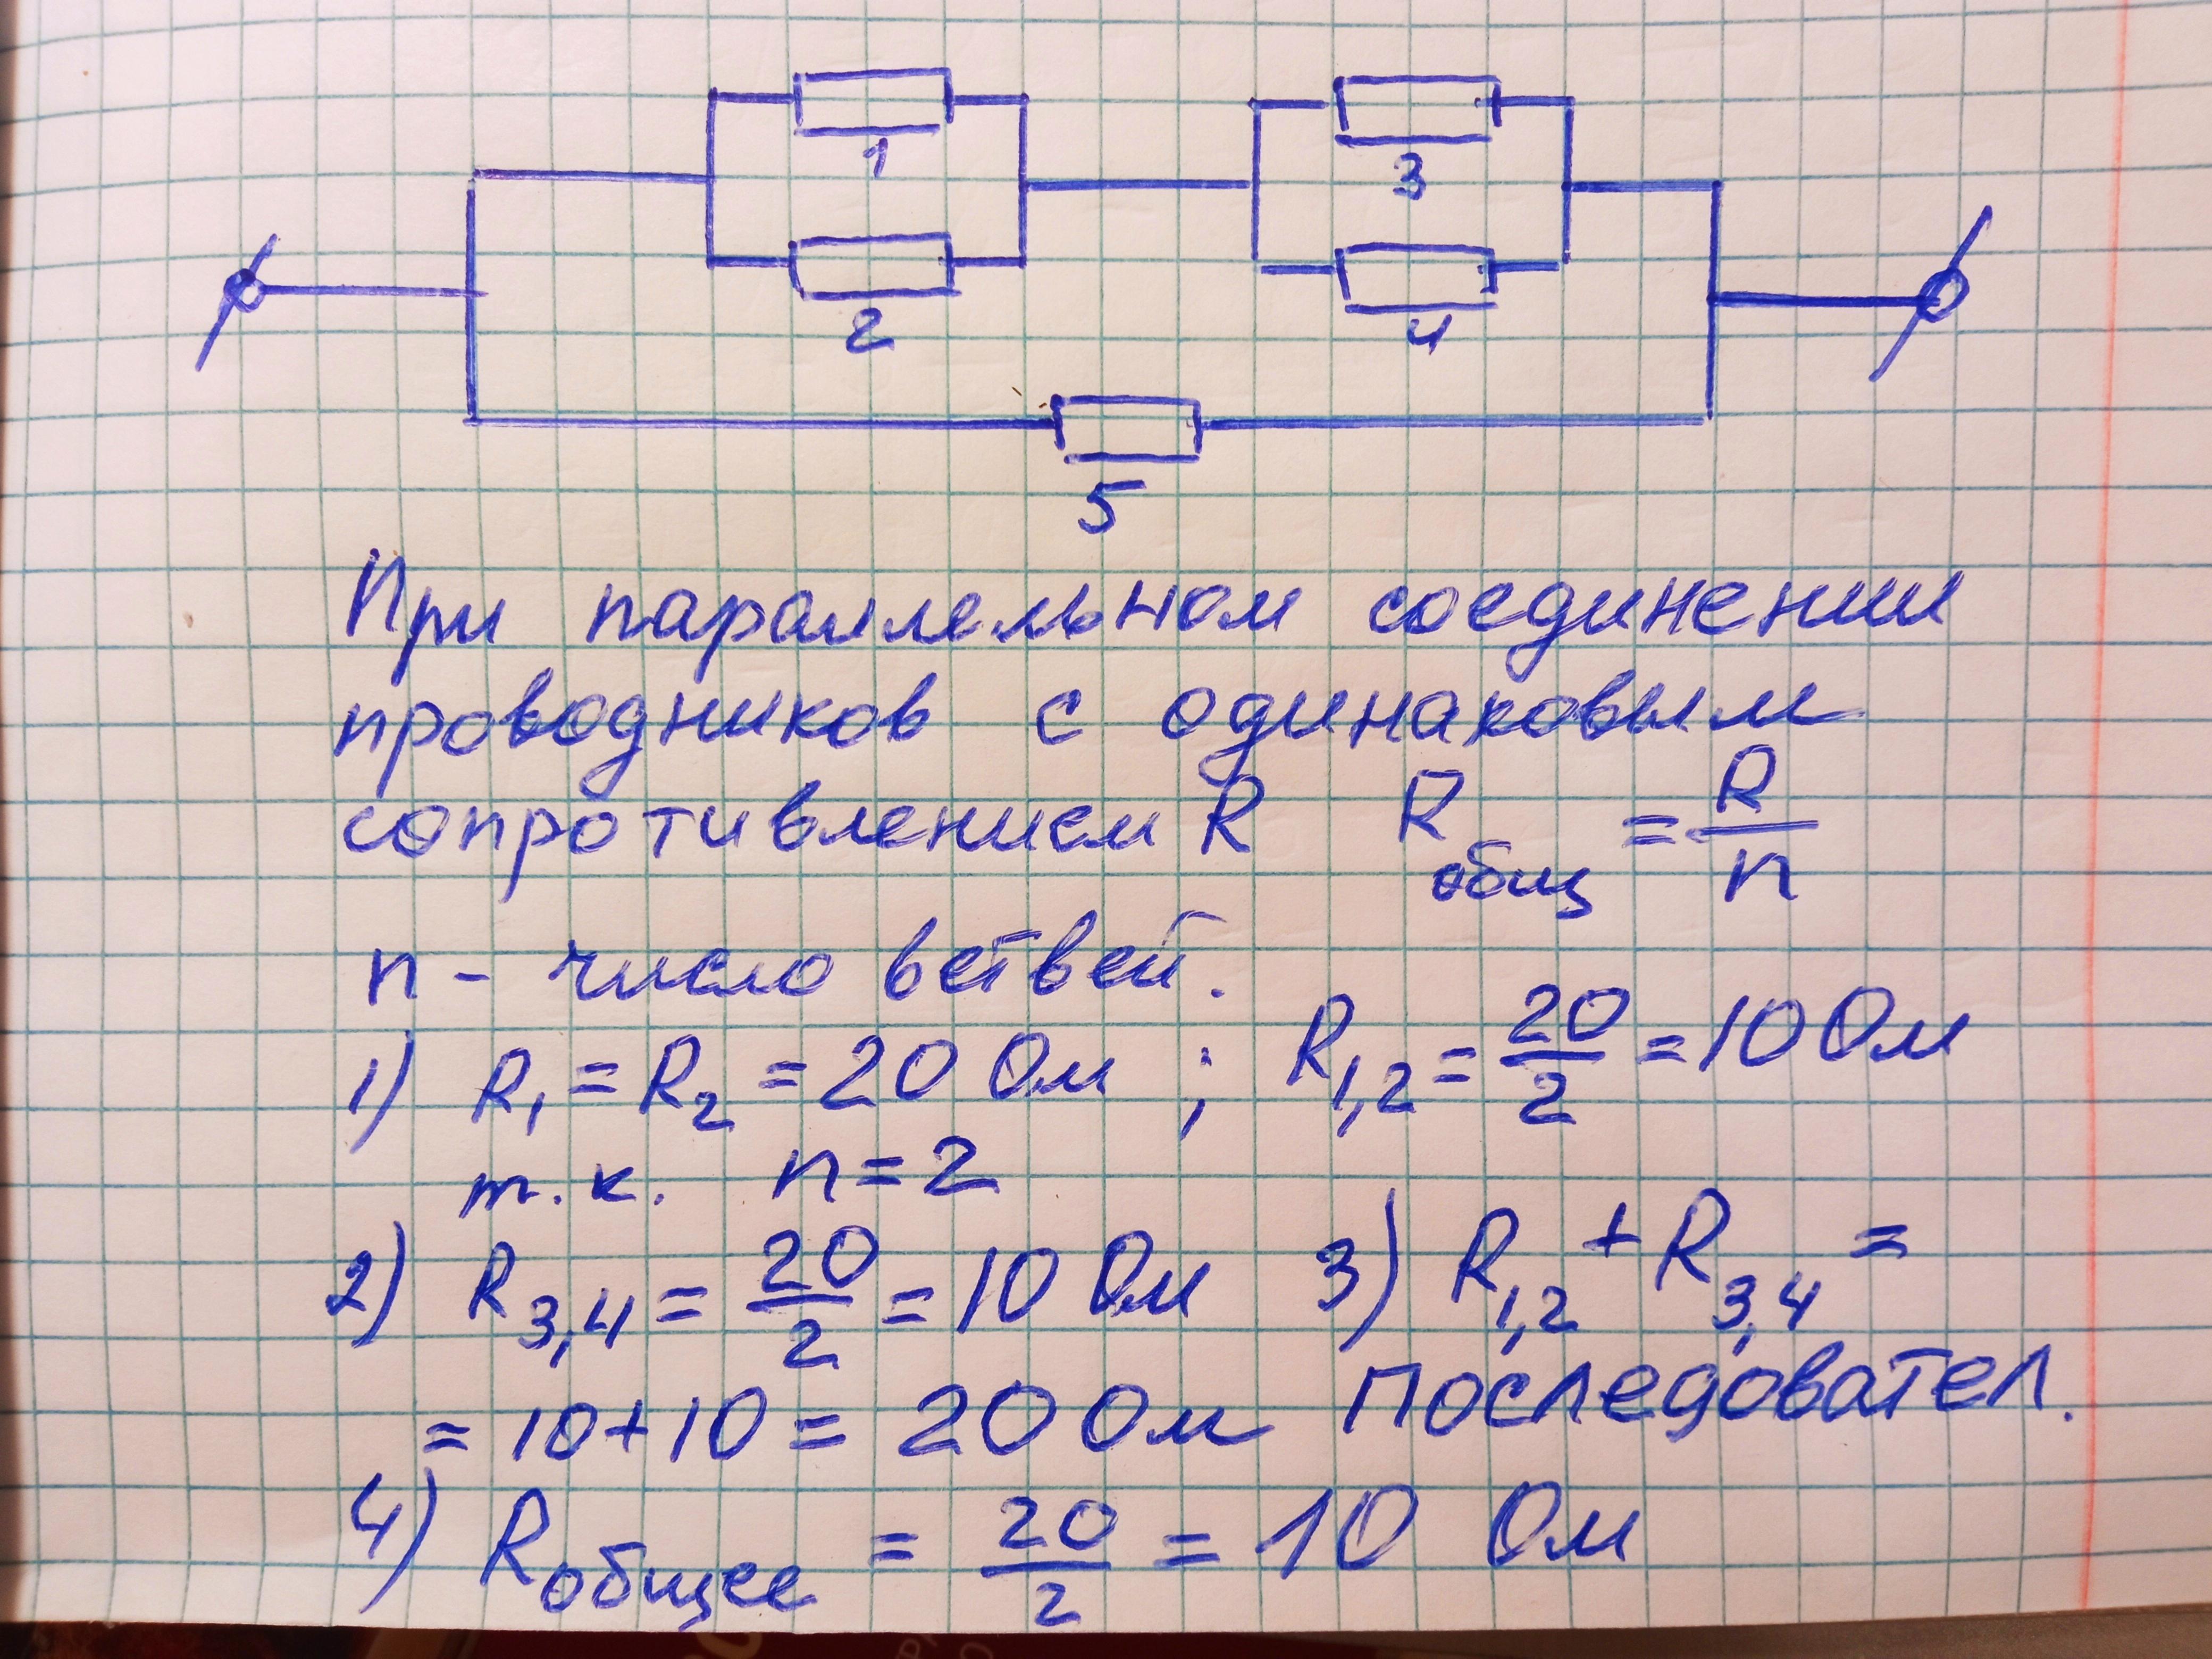 1
3
2
4
5
При параллельном соединении
проводников с одинаковым
сопротивлением R R общ = R/n
n - число ветвей.
1) R₁ = R₂ = 20 Ом ; R₁,₂ = 20/2 = 10 Ом
т.к. n = 2
2) R₃,₄ = 20/2 = 10 Ом 3) R₁,₂ + R₃,₄ =
= 10 + 10 = 20 Ом последовател.
4) R общее = 20/2 = 10 Ом